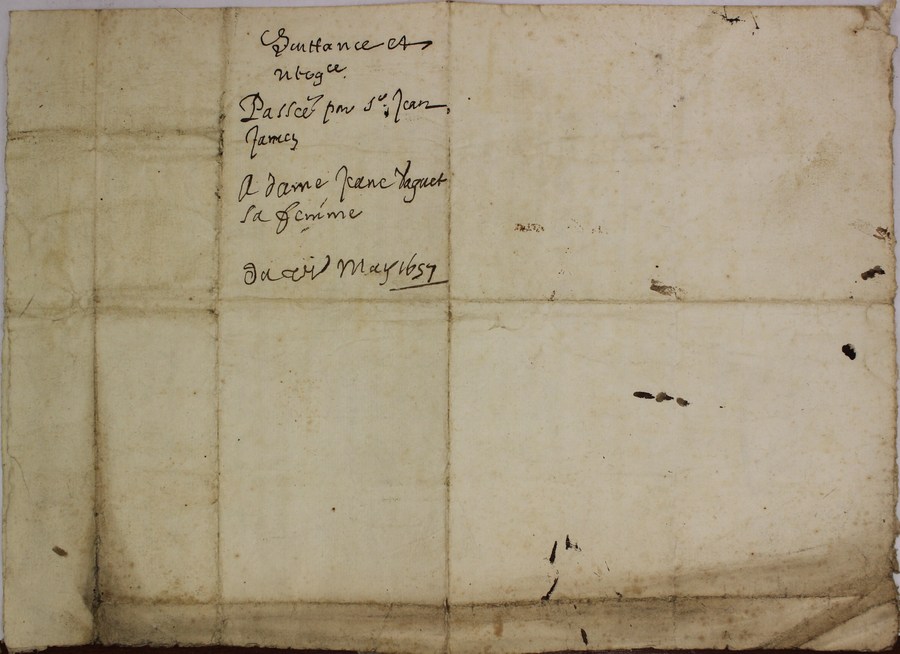 Quittance et
Passée par Sr. Jean
Jamey
A dame Jeanne Vaguet
sa femme
Du May 1657